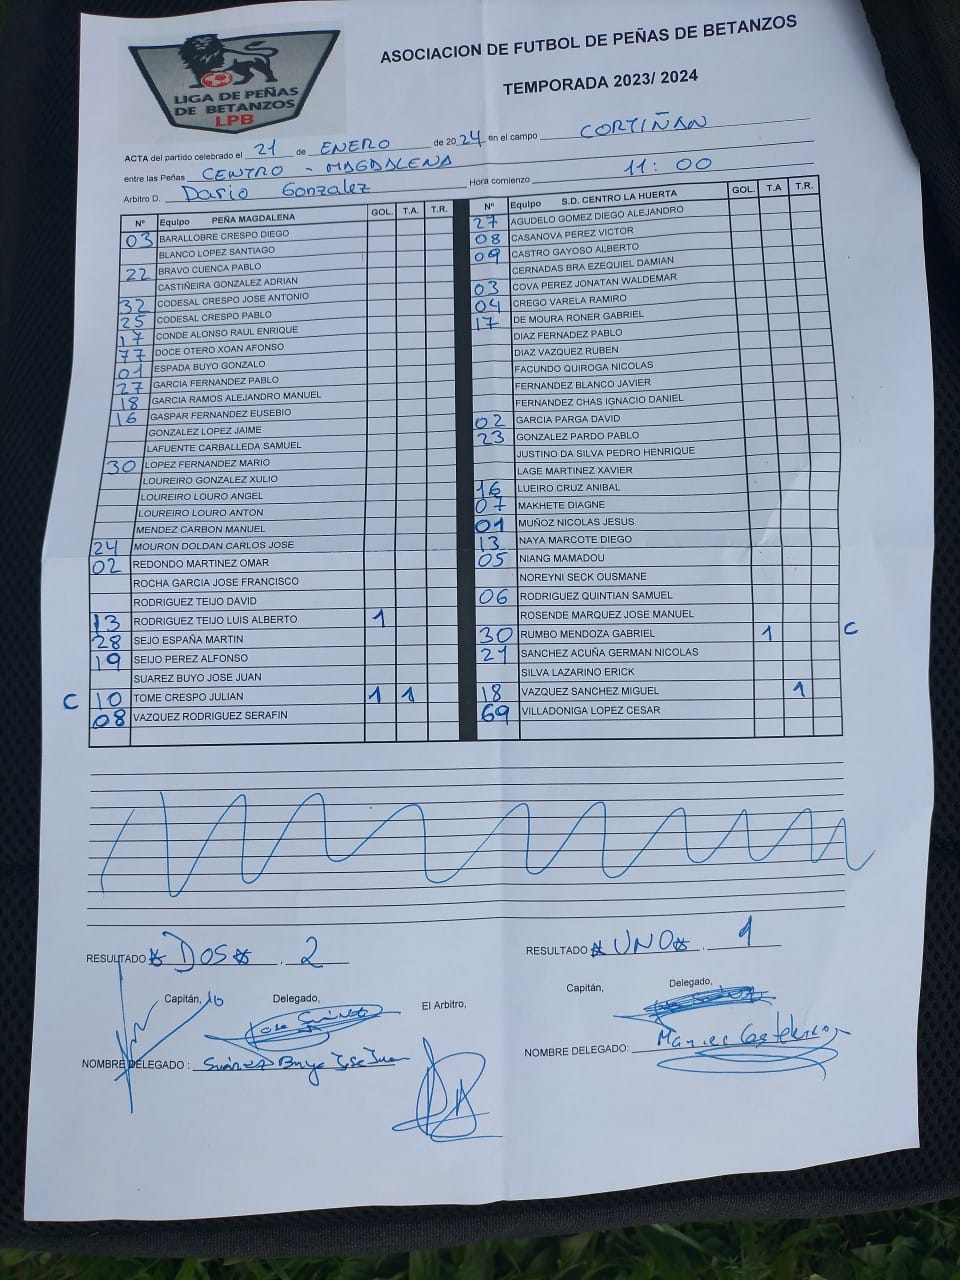 LIGA DE PEÑAS
DE BETANZOS
LPB
ASOCIACION DE FUTBOL DE PEÑAS DE BETANZOS
TEMPORADA 2023/ 2024
ACTA del partido celebrado el 21 de ENERO de 2024 en el campo CORTIÑAN
entre las Peñas CENTRO - MAGDALENA
Arbitro D. Dario Gonzalez Hora comienzo 11:00
Nº Equipo PEÑA MAGDALENA GOL. T.A. T.R.
03 BARALLOBRE CRESPO DIEGO
BLANCO LOPEZ SANTIAGO
22 BRAVO CUENCA PABLO
CASTIÑEIRA GONZALEZ ADRIAN
32 CODESAL CRESPO JOSE ANTONIO
25 CODESAL CRESPO PABLO
17 CONDE ALONSO RAUL ENRIQUE
77 DOCE OTERO XOAN AFONSO
01 ESPADA BUYO GONZALO
27 GARCIA FERNANDEZ PABLO
18 GARCIA RAMOS ALEJANDRO MANUEL
16 GASPAR FERNANDEZ EUSEBIO
GONZALEZ LOPEZ JAIME
LAFUENTE CARBALLEDA SAMUEL
30 LOPEZ FERNANDEZ MARIO
LOUREIRO GONZALEZ XULIO
LOUREIRO LOURO ANGEL
LOUREIRO LOURO ANTON
MENDEZ CARBON MANUEL
24 MOURON DOLDAN CARLOS JOSE
02 REDONDO MARTINEZ OMAR
ROCHA GARCIA JOSE FRANCISCO
RODRIGUEZ TEIJO DAVID
13 RODRIGUEZ TEIJO LUIS ALBERTO 1
28 SEJO ESPAÑA MARTIN
19 SEIJO PEREZ ALFONSO
SUAREZ BUYO JOSE JUAN
C 10 TOME CRESPO JULIAN 1 1
08 VAZQUEZ RODRIGUEZ SERAFIN
Nº Equipo S.D. CENTRO LA HUERTA GOL. T.A T.R.
27 AGUDELO GOMEZ DIEGO ALEJANDRO
08 CASANOVA PEREZ VICTOR
09 CASTRO GAYOSO ALBERTO
CERNADAS BRA EZEQUIEL DAMIAN
03 COVA PEREZ JONATAN WALDEMAR
04 CREGO VARELA RAMIRO
17 DE MOURA RONER GABRIEL
DIAZ FERNADEZ PABLO
DIAZ VAZQUEZ RUBEN
FACUNDO QUIROGA NICOLAS
FERNANDEZ BLANCO JAVIER
FERNANDEZ CHAS IGNACIO DANIEL
02 GARCIA PARGA DAVID
23 GONZALEZ PARDO PABLO
JUSTINO DA SILVA PEDRO HENRIQUE
LAGE MARTINEZ XAVIER
16 LUEIRO CRUZ ANIBAL
07 MAKHETE DIAGNE
01 MUÑOZ NICOLAS JESUS
13 NAYA MARCOTE DIEGO
05 NIANG MAMADOU
NOREYNI SECK OUSMANE
06 RODRIGUEZ QUINTIAN SAMUEL
ROSENDE MARQUEZ JOSE MANUEL
30 RUMBO MENDOZA GABRIEL 1 C
21 SANCHEZ ACUÑA GERMAN NICOLAS
SILVA LAZARINO ERICK
18 VAZQUEZ SANCHEZ MIGUEL 1
69 VILLADONIGA LOPEZ CESAR
RESULTADO *DOS* . 2
RESULTADO *UNO* . 1
Capitán, 10 Delegado,
El Arbitro,
Capitán, Delegado,
NOMBRE DELEGADO : Suárez Buyo Jose Juan
NOMBRE DELEGADO: